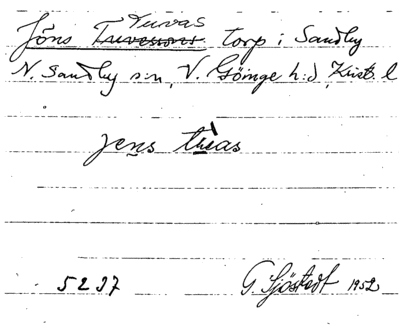 Tuvas
Jöns Tuvesons torp i Sandby
N. Sandby s:n, V. Göinge h:d, Krist. l
jens tuas
5237 G. Sjöstedt 1952